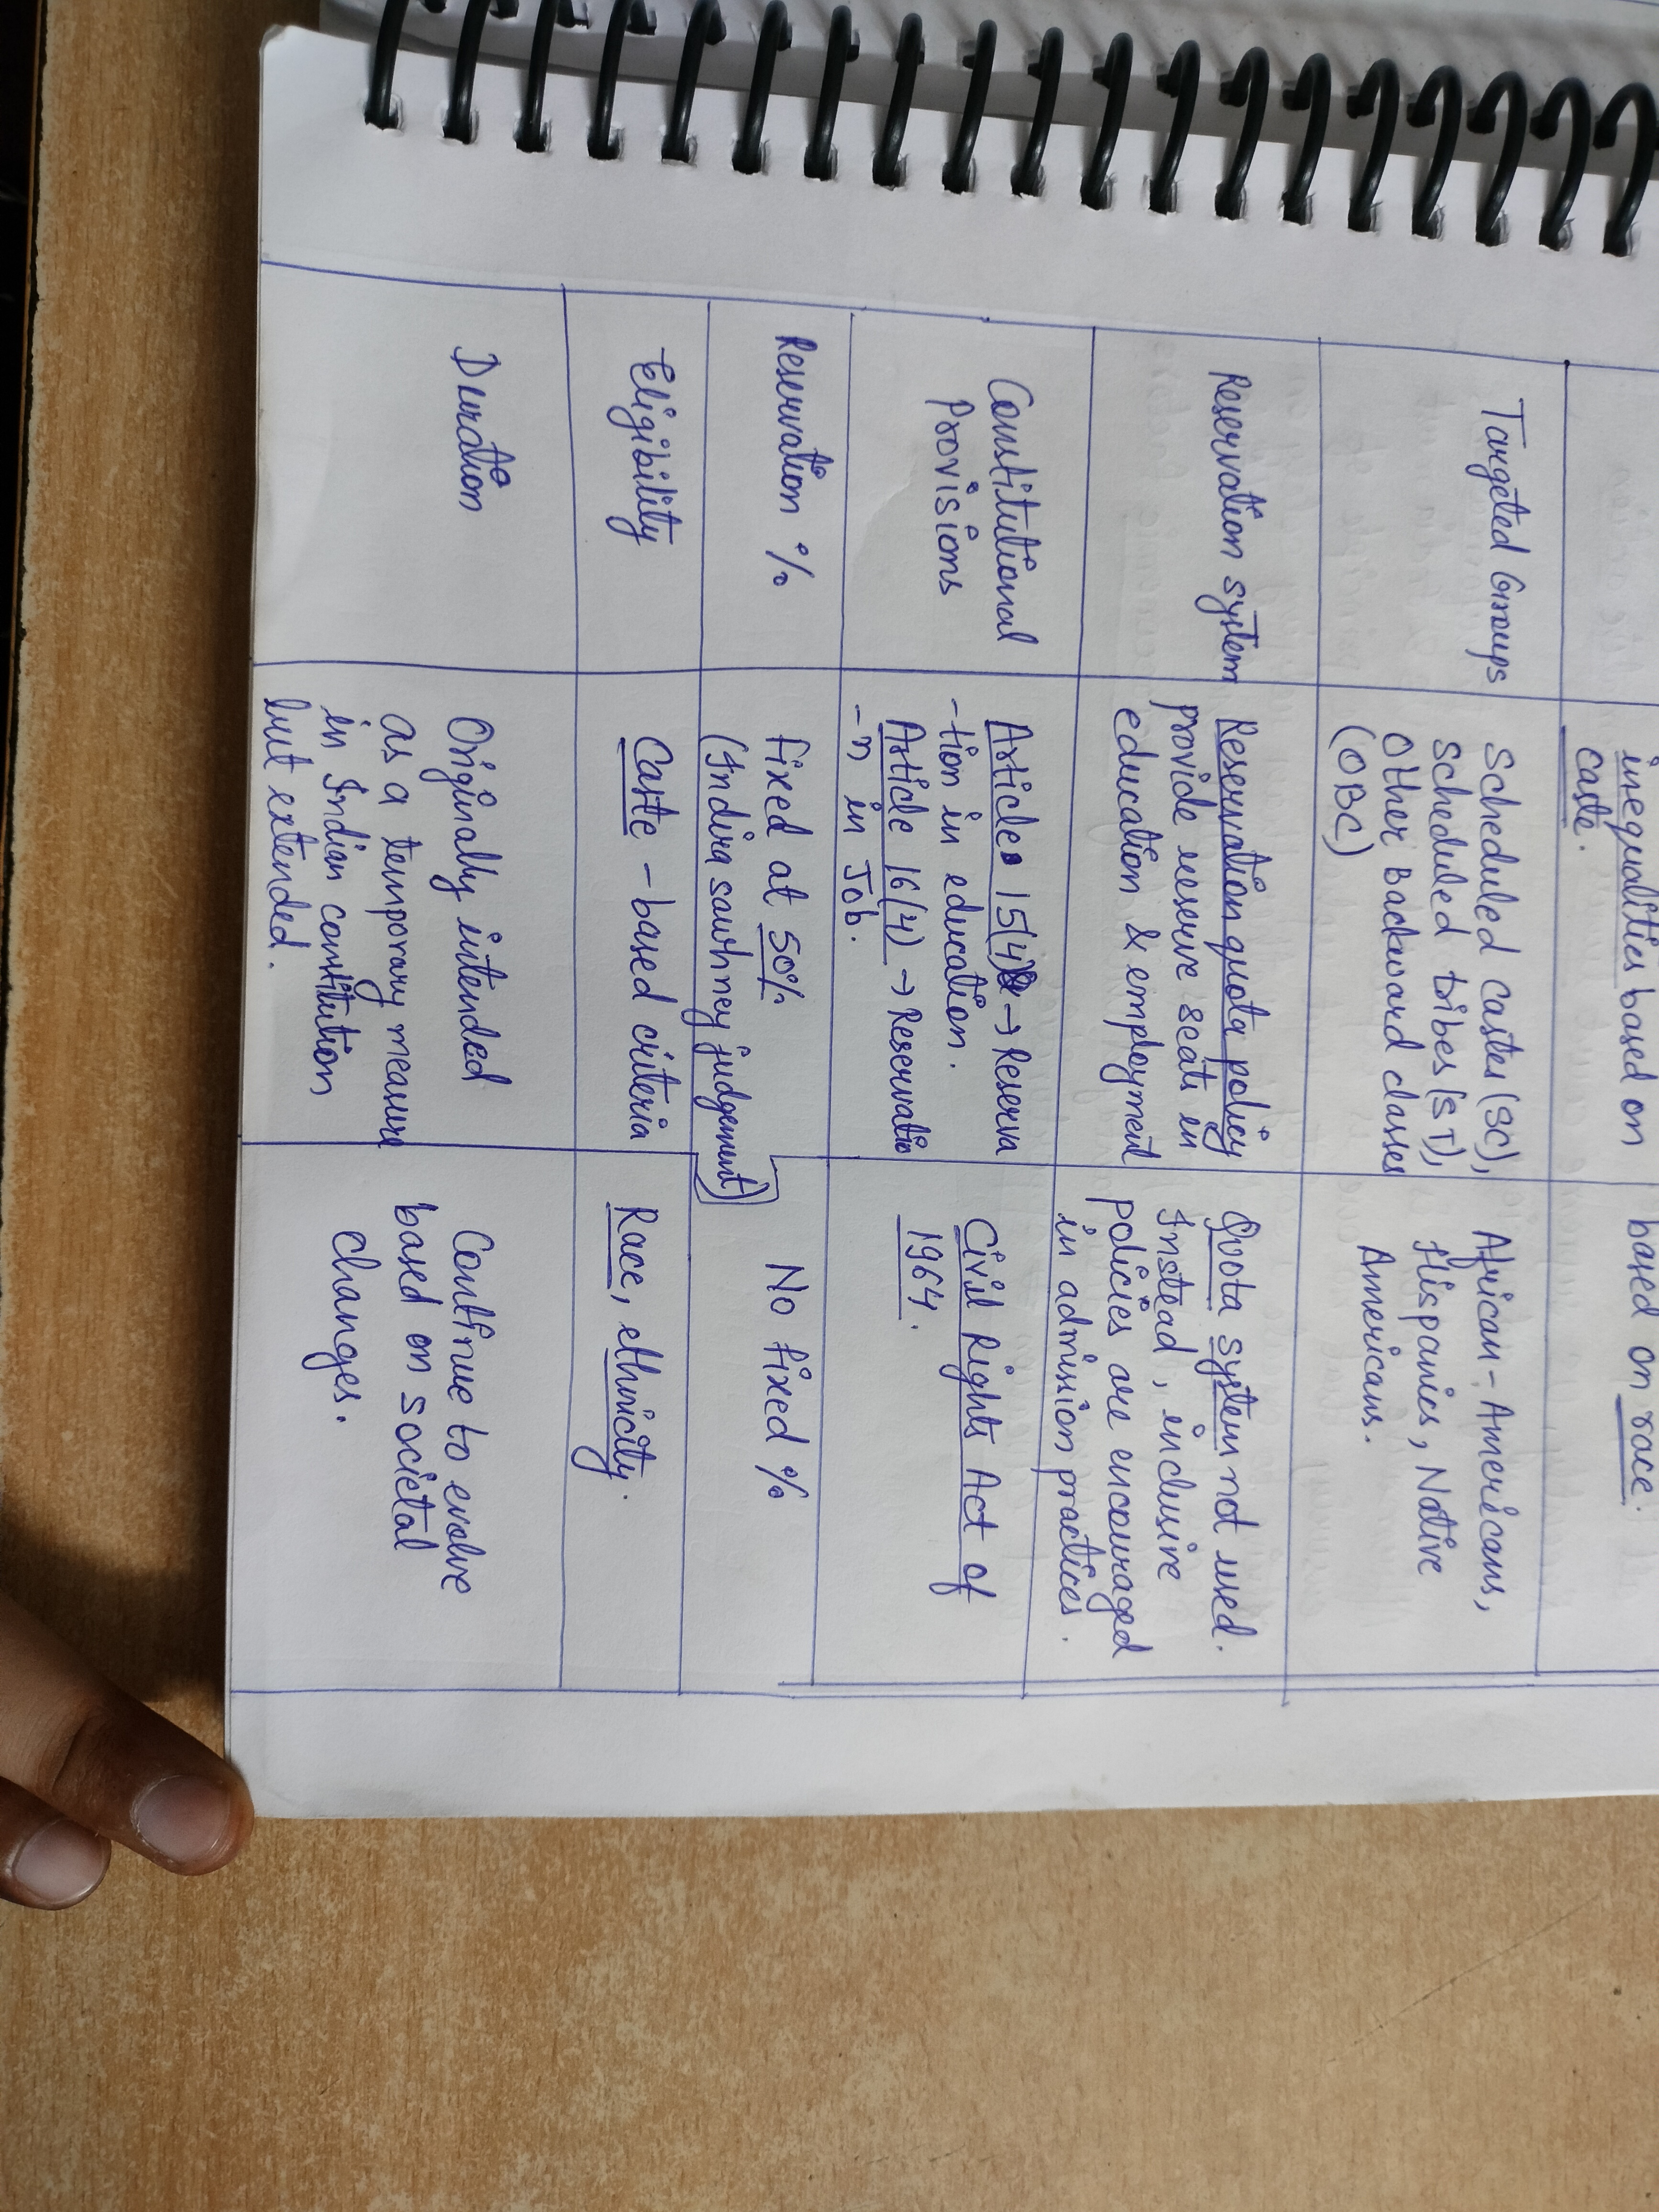 inequalities based on
caste.
based on race.
Targeted Groups
Scheduled Castes (SC),
Scheduled tribes (ST),
Other Backward classes
(OBC)
African-Americans,
Hispanics, Native
Americans.
Reservation system
Reservation quota policy
provide reserve seats in
education & employment
Quota system not used.
Instead, inclusive
policies are encouraged
in admission practices.
Constitutional
Provisions
Article 15(4) → Reserva
-tion in education.
Article 16(4) → Reservatio
-n in Job.
Civil Rights Act of
1964.
Reservation %
Fixed at 50%
(Indira sawhney judgement)
No fixed %
Eligibility
Caste-based criteria
Race, ethnicity.
Duration
Originally intended
as a temporary measure
in Indian constitution
but extended.
Continue to evolve
based on societal
changes.